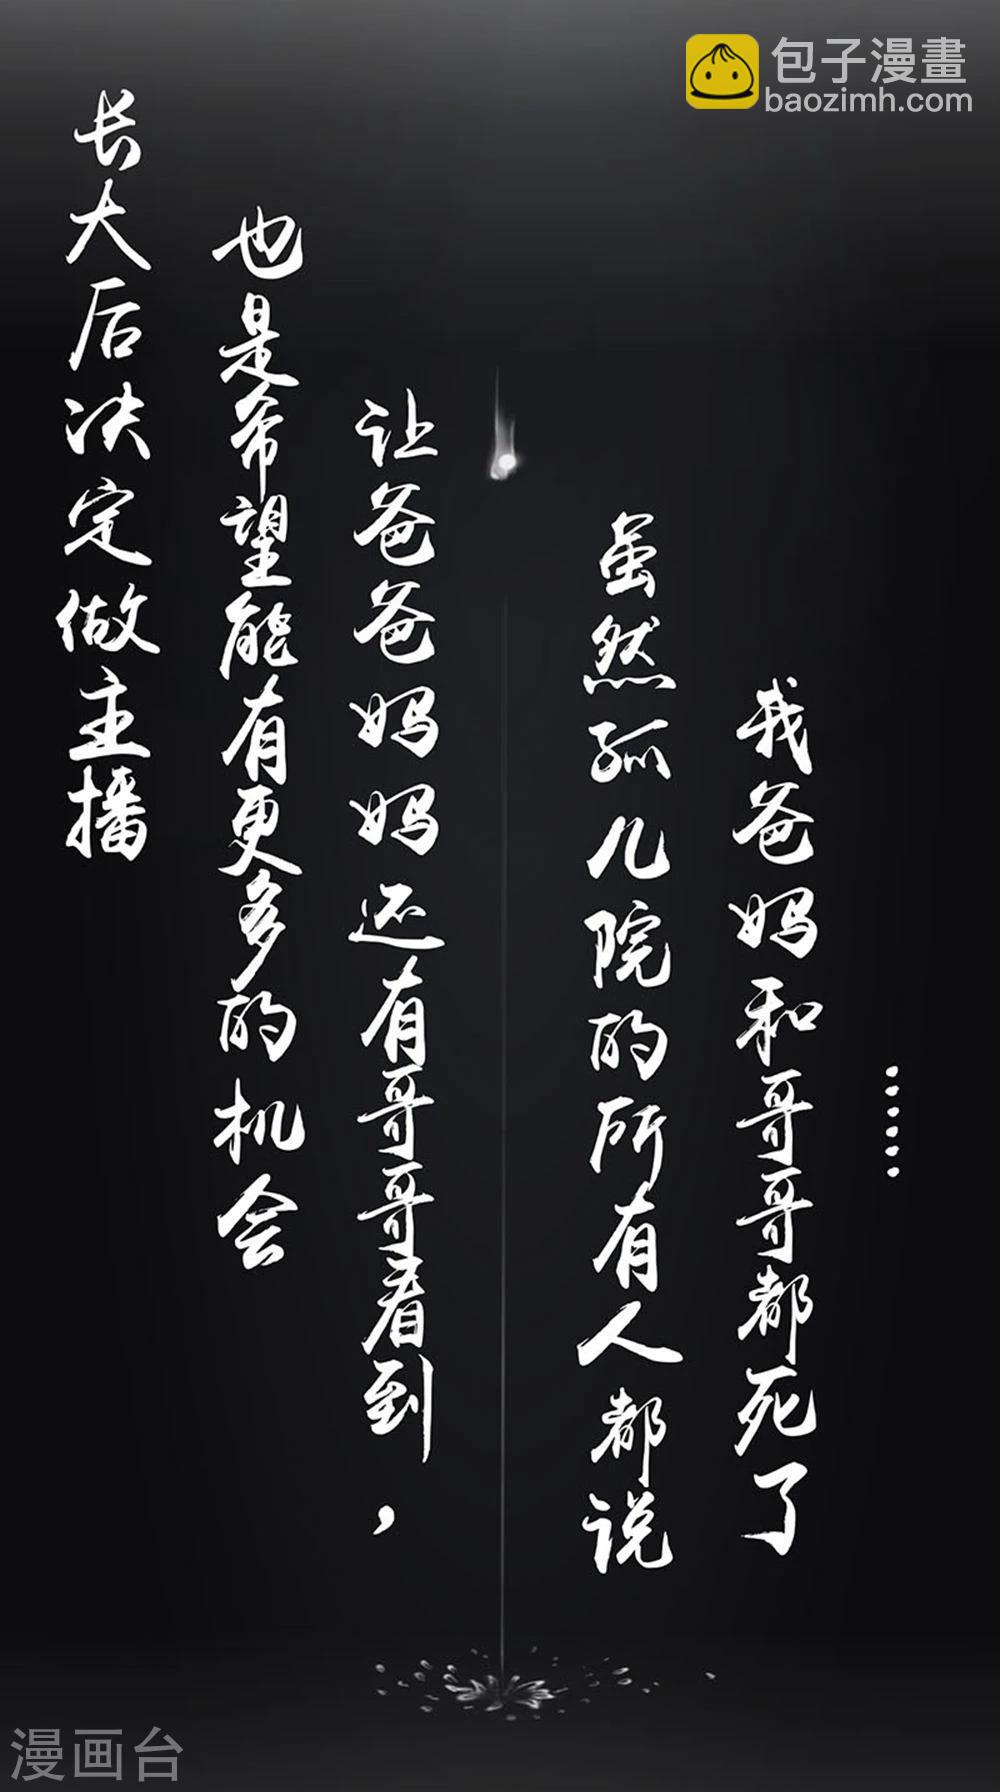 包子漫畫
baozimh.com
长大后决定做主播
也是希望能有更多的机会
让爸爸妈妈还有哥哥看到，
虽然孤儿院的所有人都说
我爸妈和哥哥都死了
……
漫画台